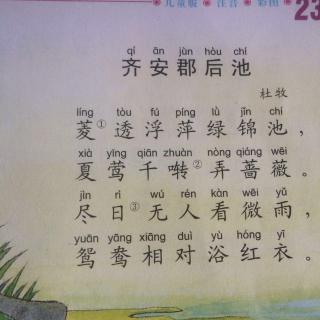 儿童版 ● 注音 ● 彩图 ● 23
qí ān jùn hòu chí
齐安郡后池
杜牧
líng tòu fú píng lǜ jǐn chí
菱①透浮萍绿锦池，
xià yīng qiān zhuàn nòng qiáng wēi
夏莺千啭②弄蔷薇。
jìn rì wú rén kàn wēi yǔ
尽日③无人看微雨，
yuān yāng xiāng duì yù hóng yī
鸳鸯相对浴红衣。